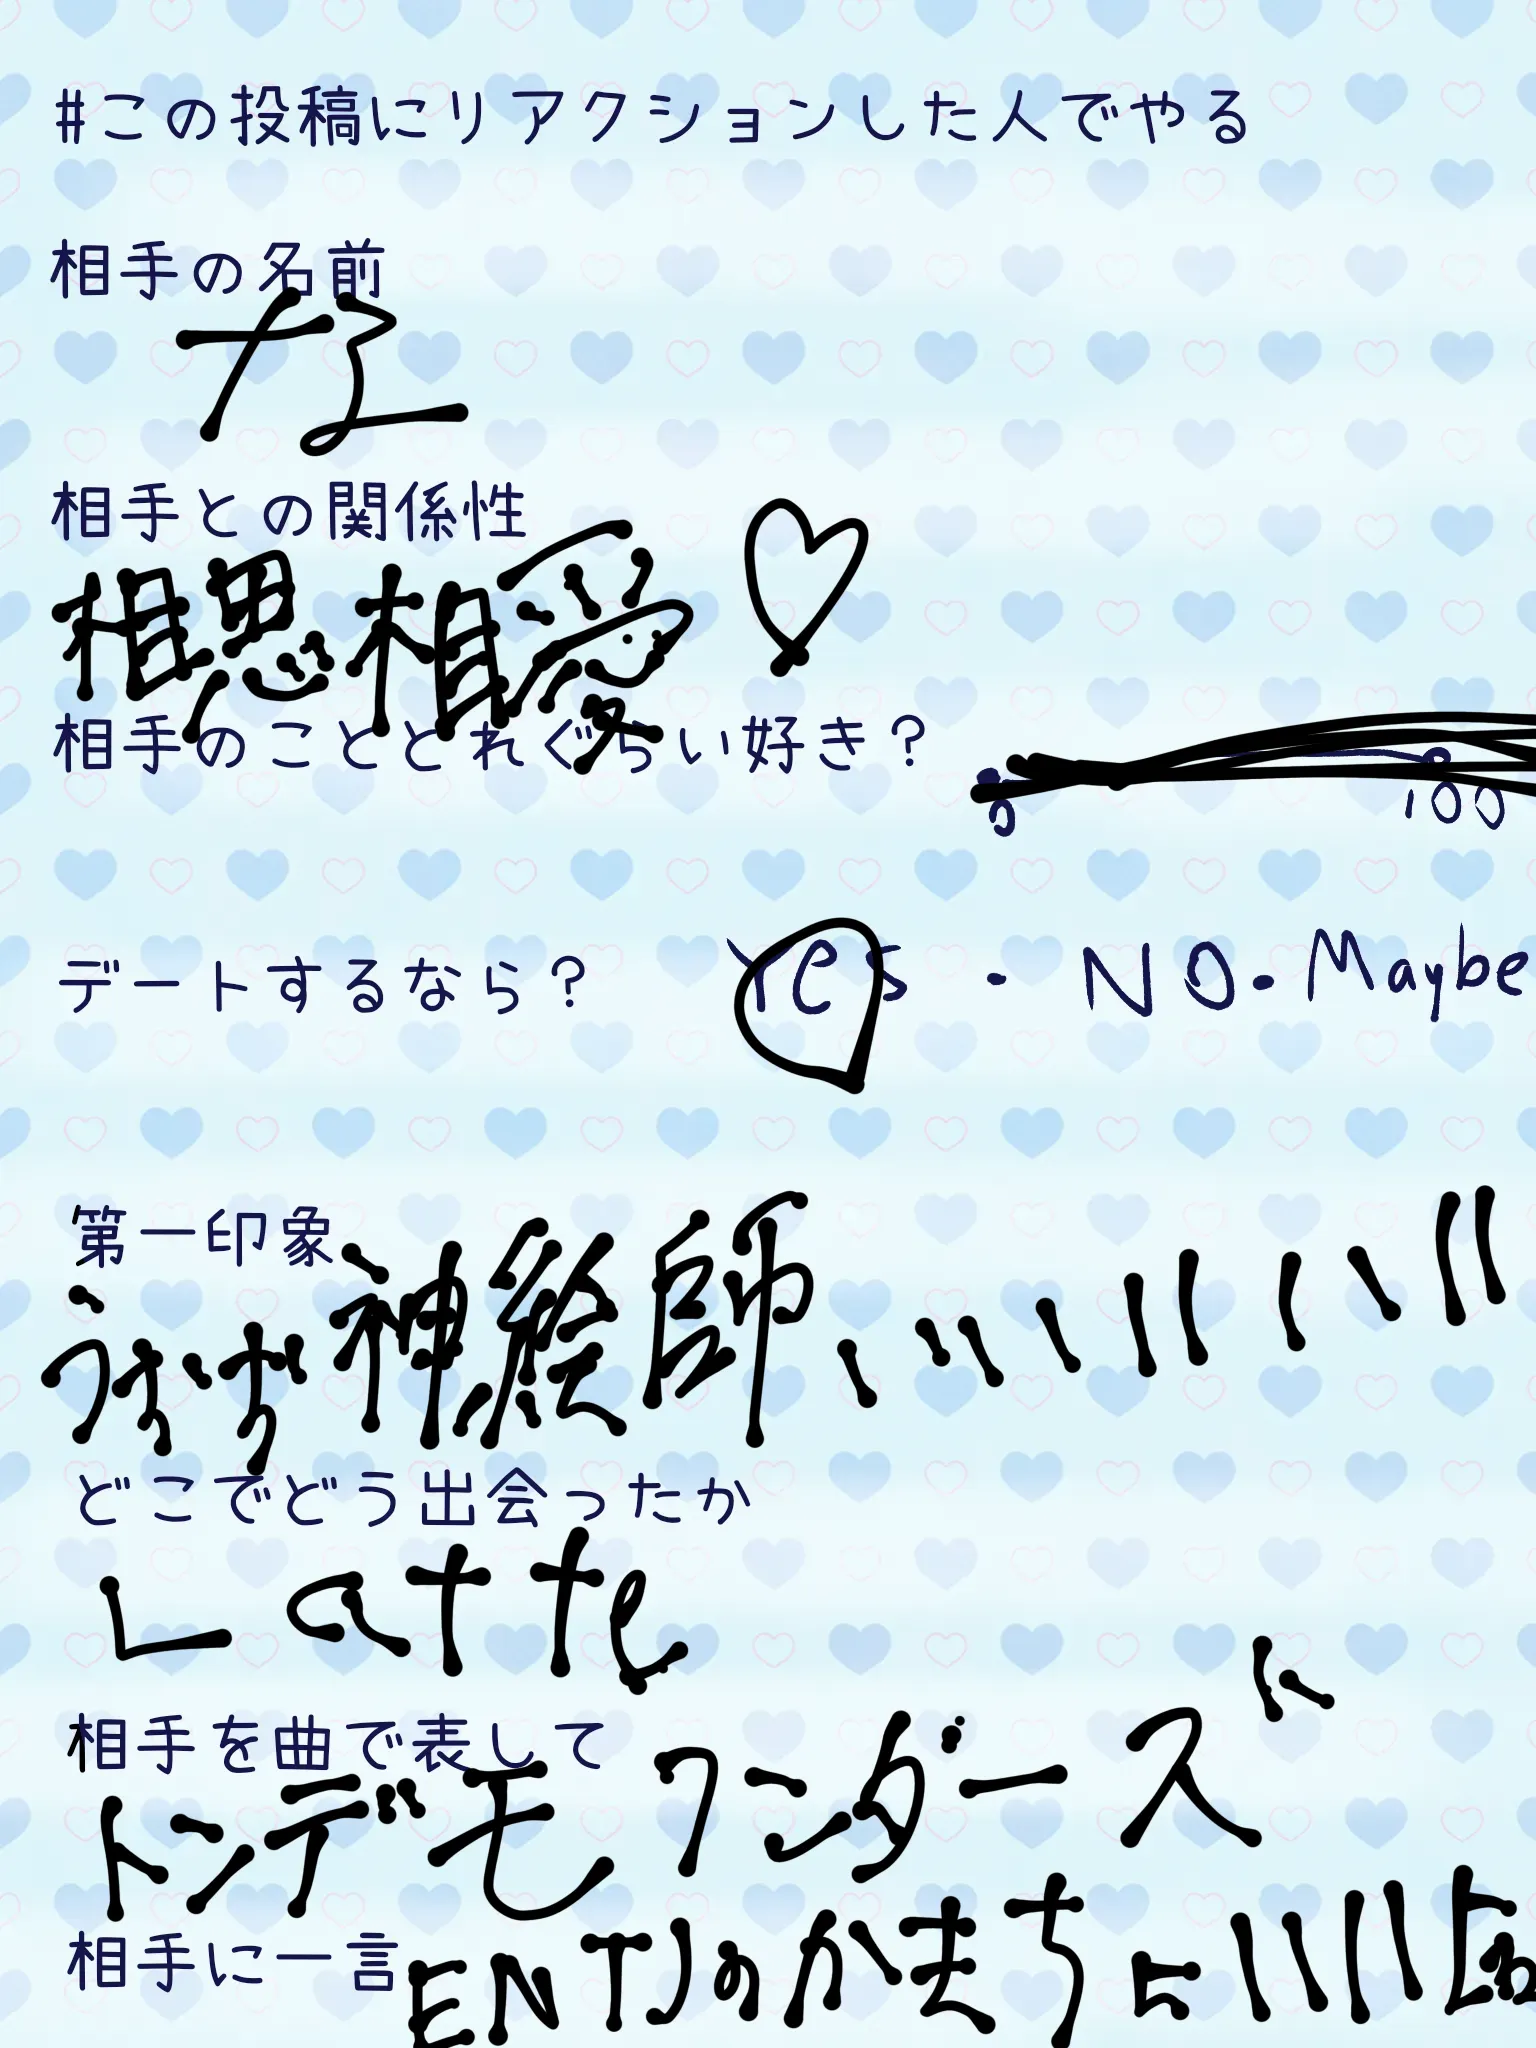 #この投稿にリアクションした人でやる
相手の名前
相手との関係性
相思相愛♡
相手のことどれぐらい好き?
0 100
デートするなら? Yes・NO・Maybe
第一印象
神絵師
どこでどう出会ったか
Latte
相手を曲で表して
トンデモワンダーズ
相手に一言
ENTJのかまちょ